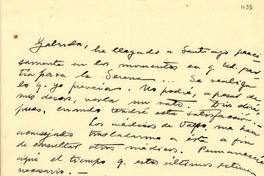 1133
Gabriela, he llegado a Santiago preci-
samente en los momentos en q. Ud. par-
tía para la Serena... Se realiza
lo q. yo preveía. No podré, a pesar de
mis deseos, verla un rato. Dios dirá,
pues, cuando tendré esta satisfacción.
Los médicos de Valpo. me han
aconsejado trasladarme a éste a fin
de consultar otros médicos. Permaneceré
aquí el tiempo q. estos últimos estimen
necesario.